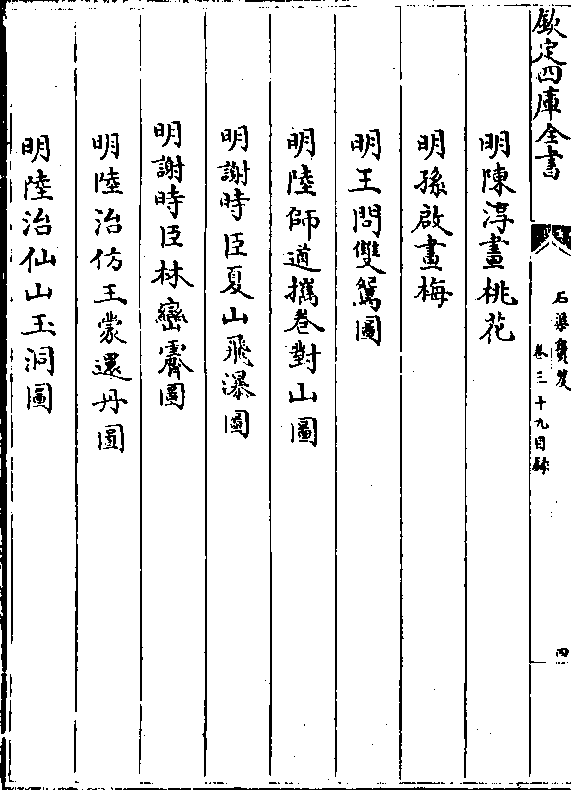 欽定四庫全書
石渠寶笈
卷三十九目錄
四
明陳淳畫桃花
明孫啟畫梅
明王問雙鴛圖
明陸師道攜卷對山圖
明謝時臣夏山飛瀑圖
明謝時臣林巒霽圖
明陸治仿王蒙還丹圖
明陸治仙山玉洞圖